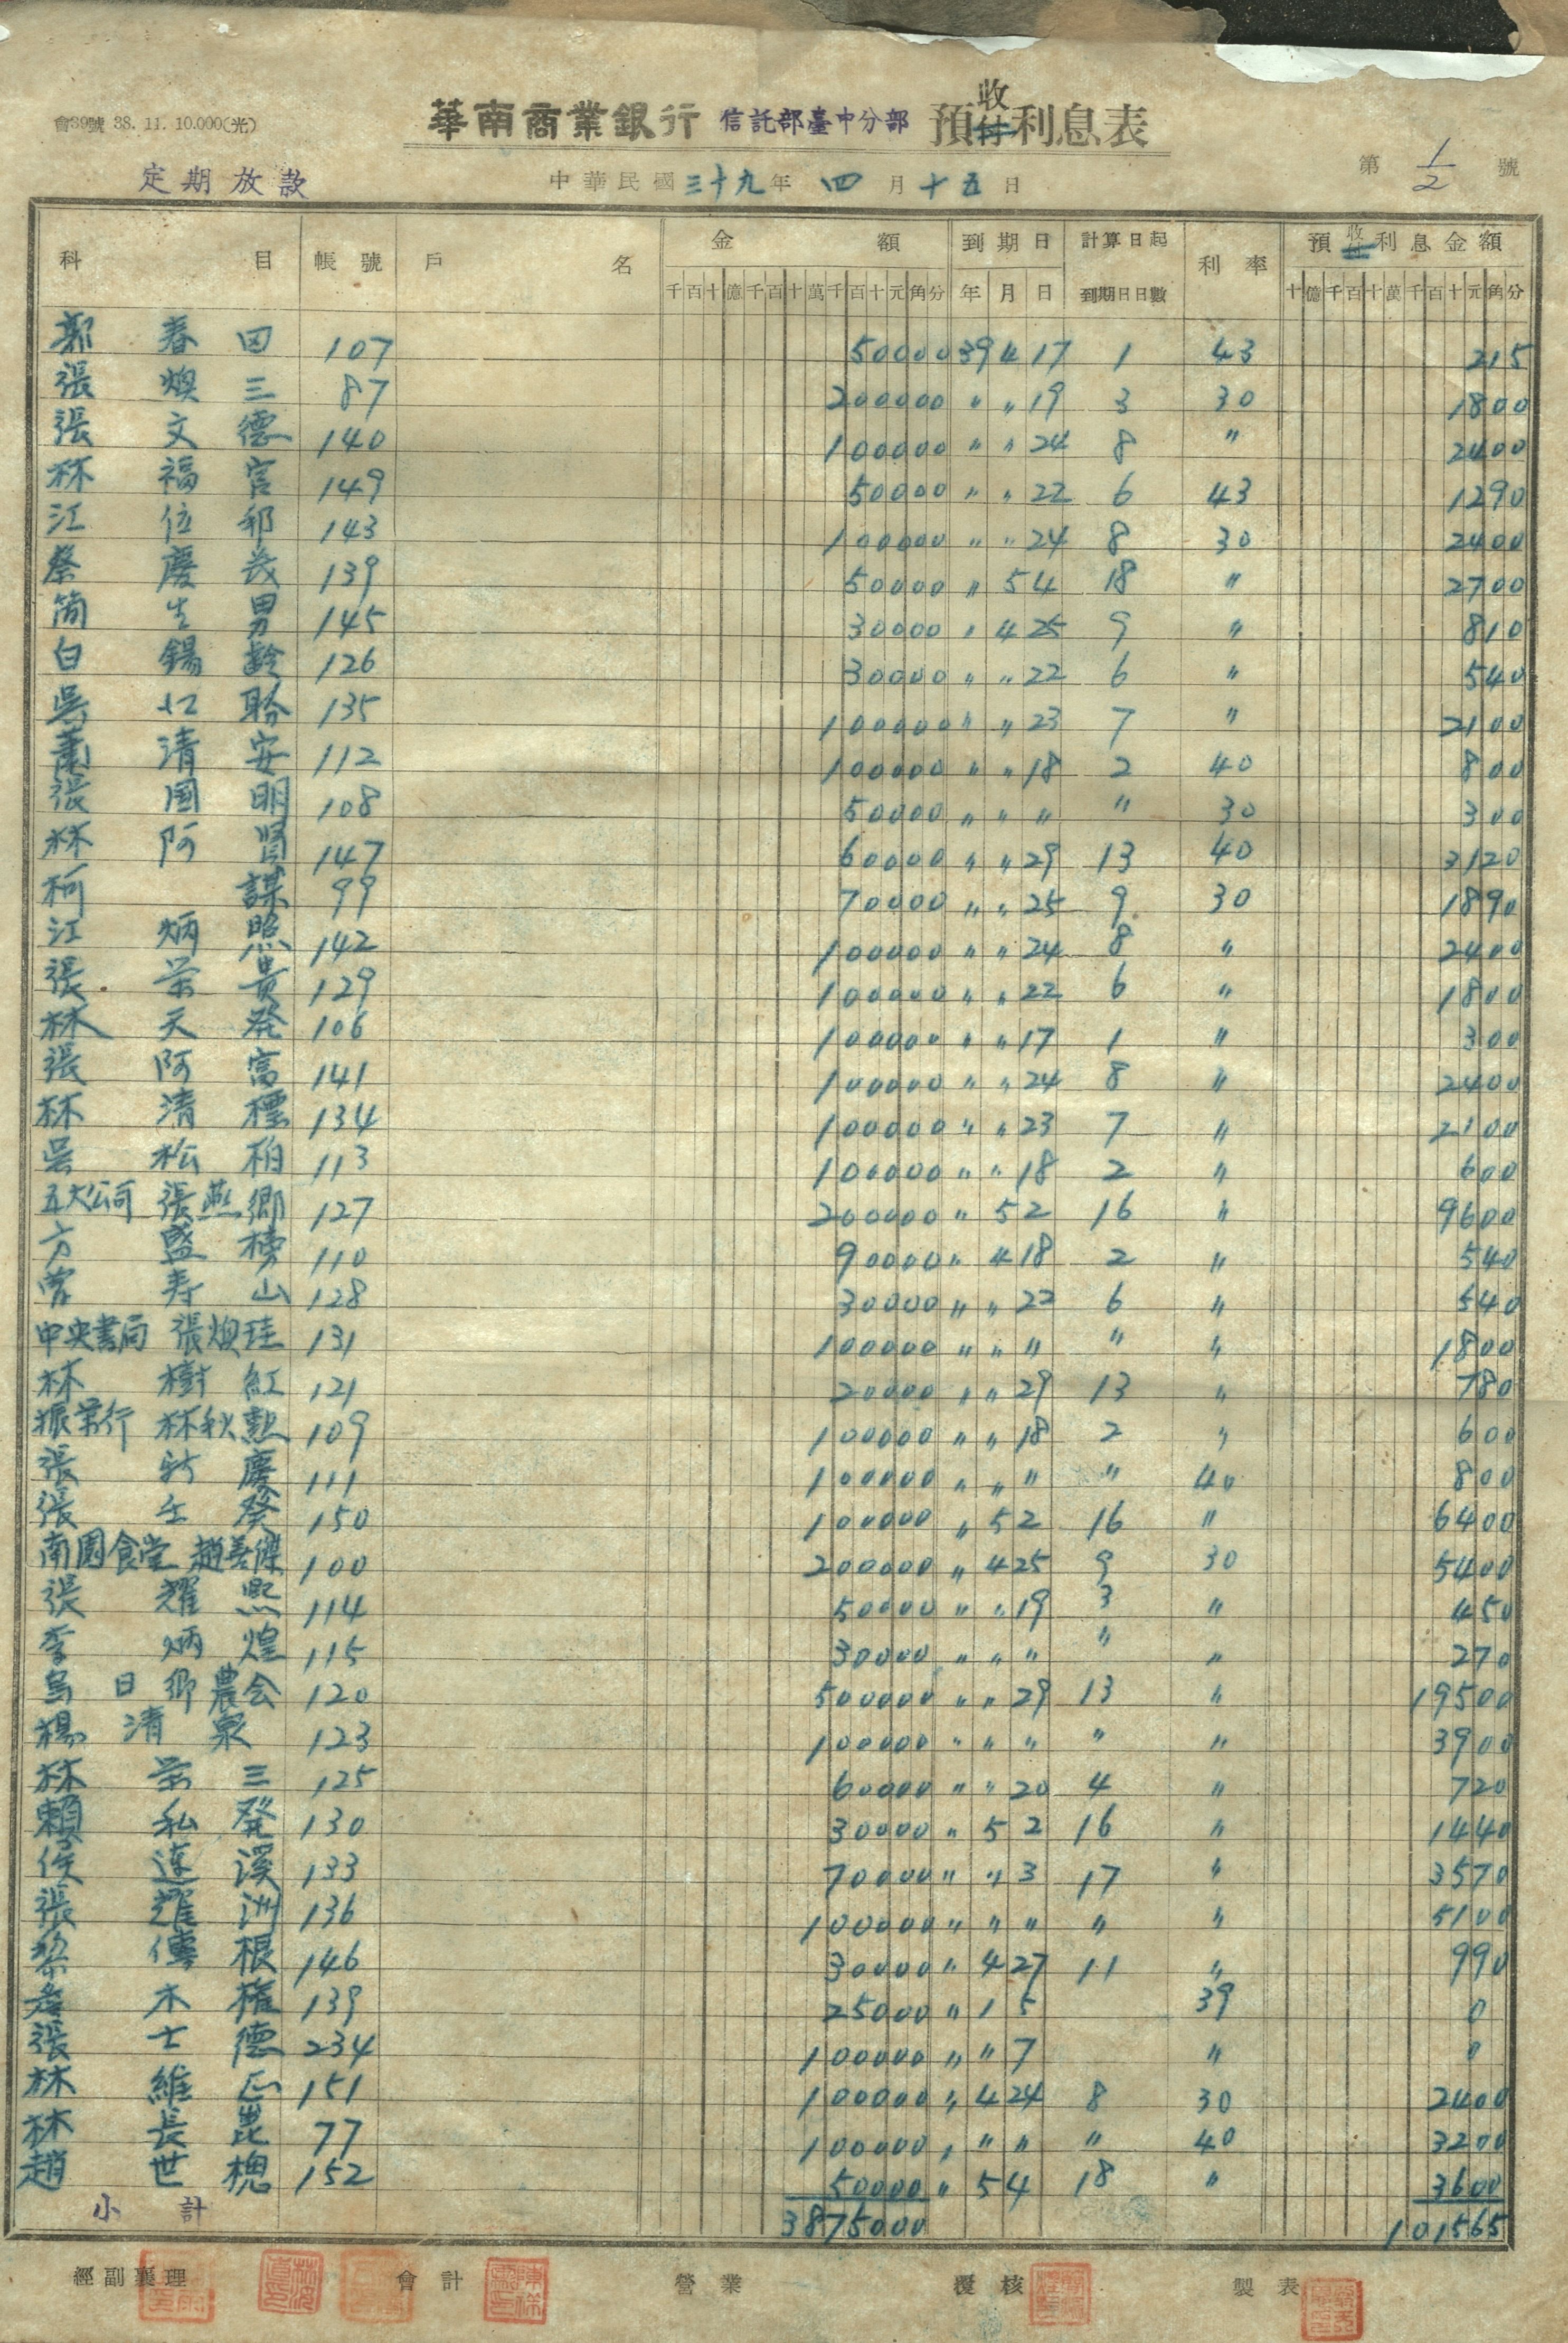 會39號 38. 11. 10.000(光)
華南商業銀行 信託部臺中分部 預收付利息表
定期放款 中華民國三十九年 四月十五日 第 1/2 號
科目 帳號 戶名 金額 到期日 計算日起到期日日數 利率 預收付利息金額
千百十億千百十萬千百十元角分 年月日 十億千百十萬千百十元角分
郭春田 107 50000 39 4 17 1 43 215
張煥三 87 200000 〃 〃 19 3 30 1800
張文德 140 100000 〃 〃 24 8 〃 2400
林福官 149 50000 〃 〃 22 6 43 1290
江位 143 100000 〃 〃 24 8 30 2400
蔡慶茂 139 50000 〃 5 4 18 〃 2700
簡生男 145 30000 〃 4 25 9 〃 810
白錫齡 126 30000 〃 〃 22 6 〃 540
吳 135 100000 〃 〃 23 7 〃 2100
蕭清安 112 100000 〃 〃 18 2 40 800
張國明 108 50000 〃 〃 〃 〃 30 300
林阿賢 147 60000 〃 〃 29 13 40 3120
柯謀 99 70000 〃 〃 25 9 30 1890
江炳照 142 100000 〃 〃 24 8 〃 2400
張榮貴 129 100000 〃 〃 22 6 〃 1800
林天発 106 100000 〃 〃 17 1 〃 300
張阿富 141 100000 〃 〃 24 8 〃 2400
林清標 134 100000 〃 〃 23 7 〃 2100
吳松柏 113 100000 〃 〃 18 2 〃 600
五大公司 張燕鄉 127 200000 〃 5 2 16 〃 9600
方盛 110 90000 〃 4 18 2 〃 540
曾寿山 128 30000 〃 〃 22 6 〃 540
中央書局 張煥珪 131 100000 〃 〃 〃 〃 〃 1800
林樹紅 121 20000 〃 〃 29 13 〃 780
振榮行 林秋 109 100000 〃 〃 18 2 〃 600
張新慶 111 100000 〃 〃 〃 〃 40 800
張壬癸 150 100000 〃 5 2 16 〃 6400
南園食堂 趙善傑 100 200000 〃 4 25 9 30 5400
張耀熙 114 50000 〃 〃 19 3 〃 450
李炳煌 115 30000 〃 〃 〃 〃 〃 270
烏日鄉農会 120 500000 〃 〃 29 13 〃 19500
楊清泉 123 100000 〃 〃 〃 〃 〃 3900
林榮三 125 60000 〃 〃 20 4 〃 720
賴私発 130 30000 〃 5 2 16 〃 1440
侯連溪 133 70000 〃 〃 3 17 〃 3570
張耀洲 136 100000 〃 〃 〃 〃 〃 5100
黎傳根 146 30000 〃 4 27 11 〃 990
木權 139 25000 〃 1 5 39 0
張士德 234 100000 〃 〃 7 〃 0
林維正 151 100000 〃 4 24 8 30 2400
林長崑 77 100000 〃 〃 〃 〃 40 3200
趙世 152 50000 〃 5 4 18 〃 3600
小計 3875000 101565
經副襄理 會計 營業 覆核 製表